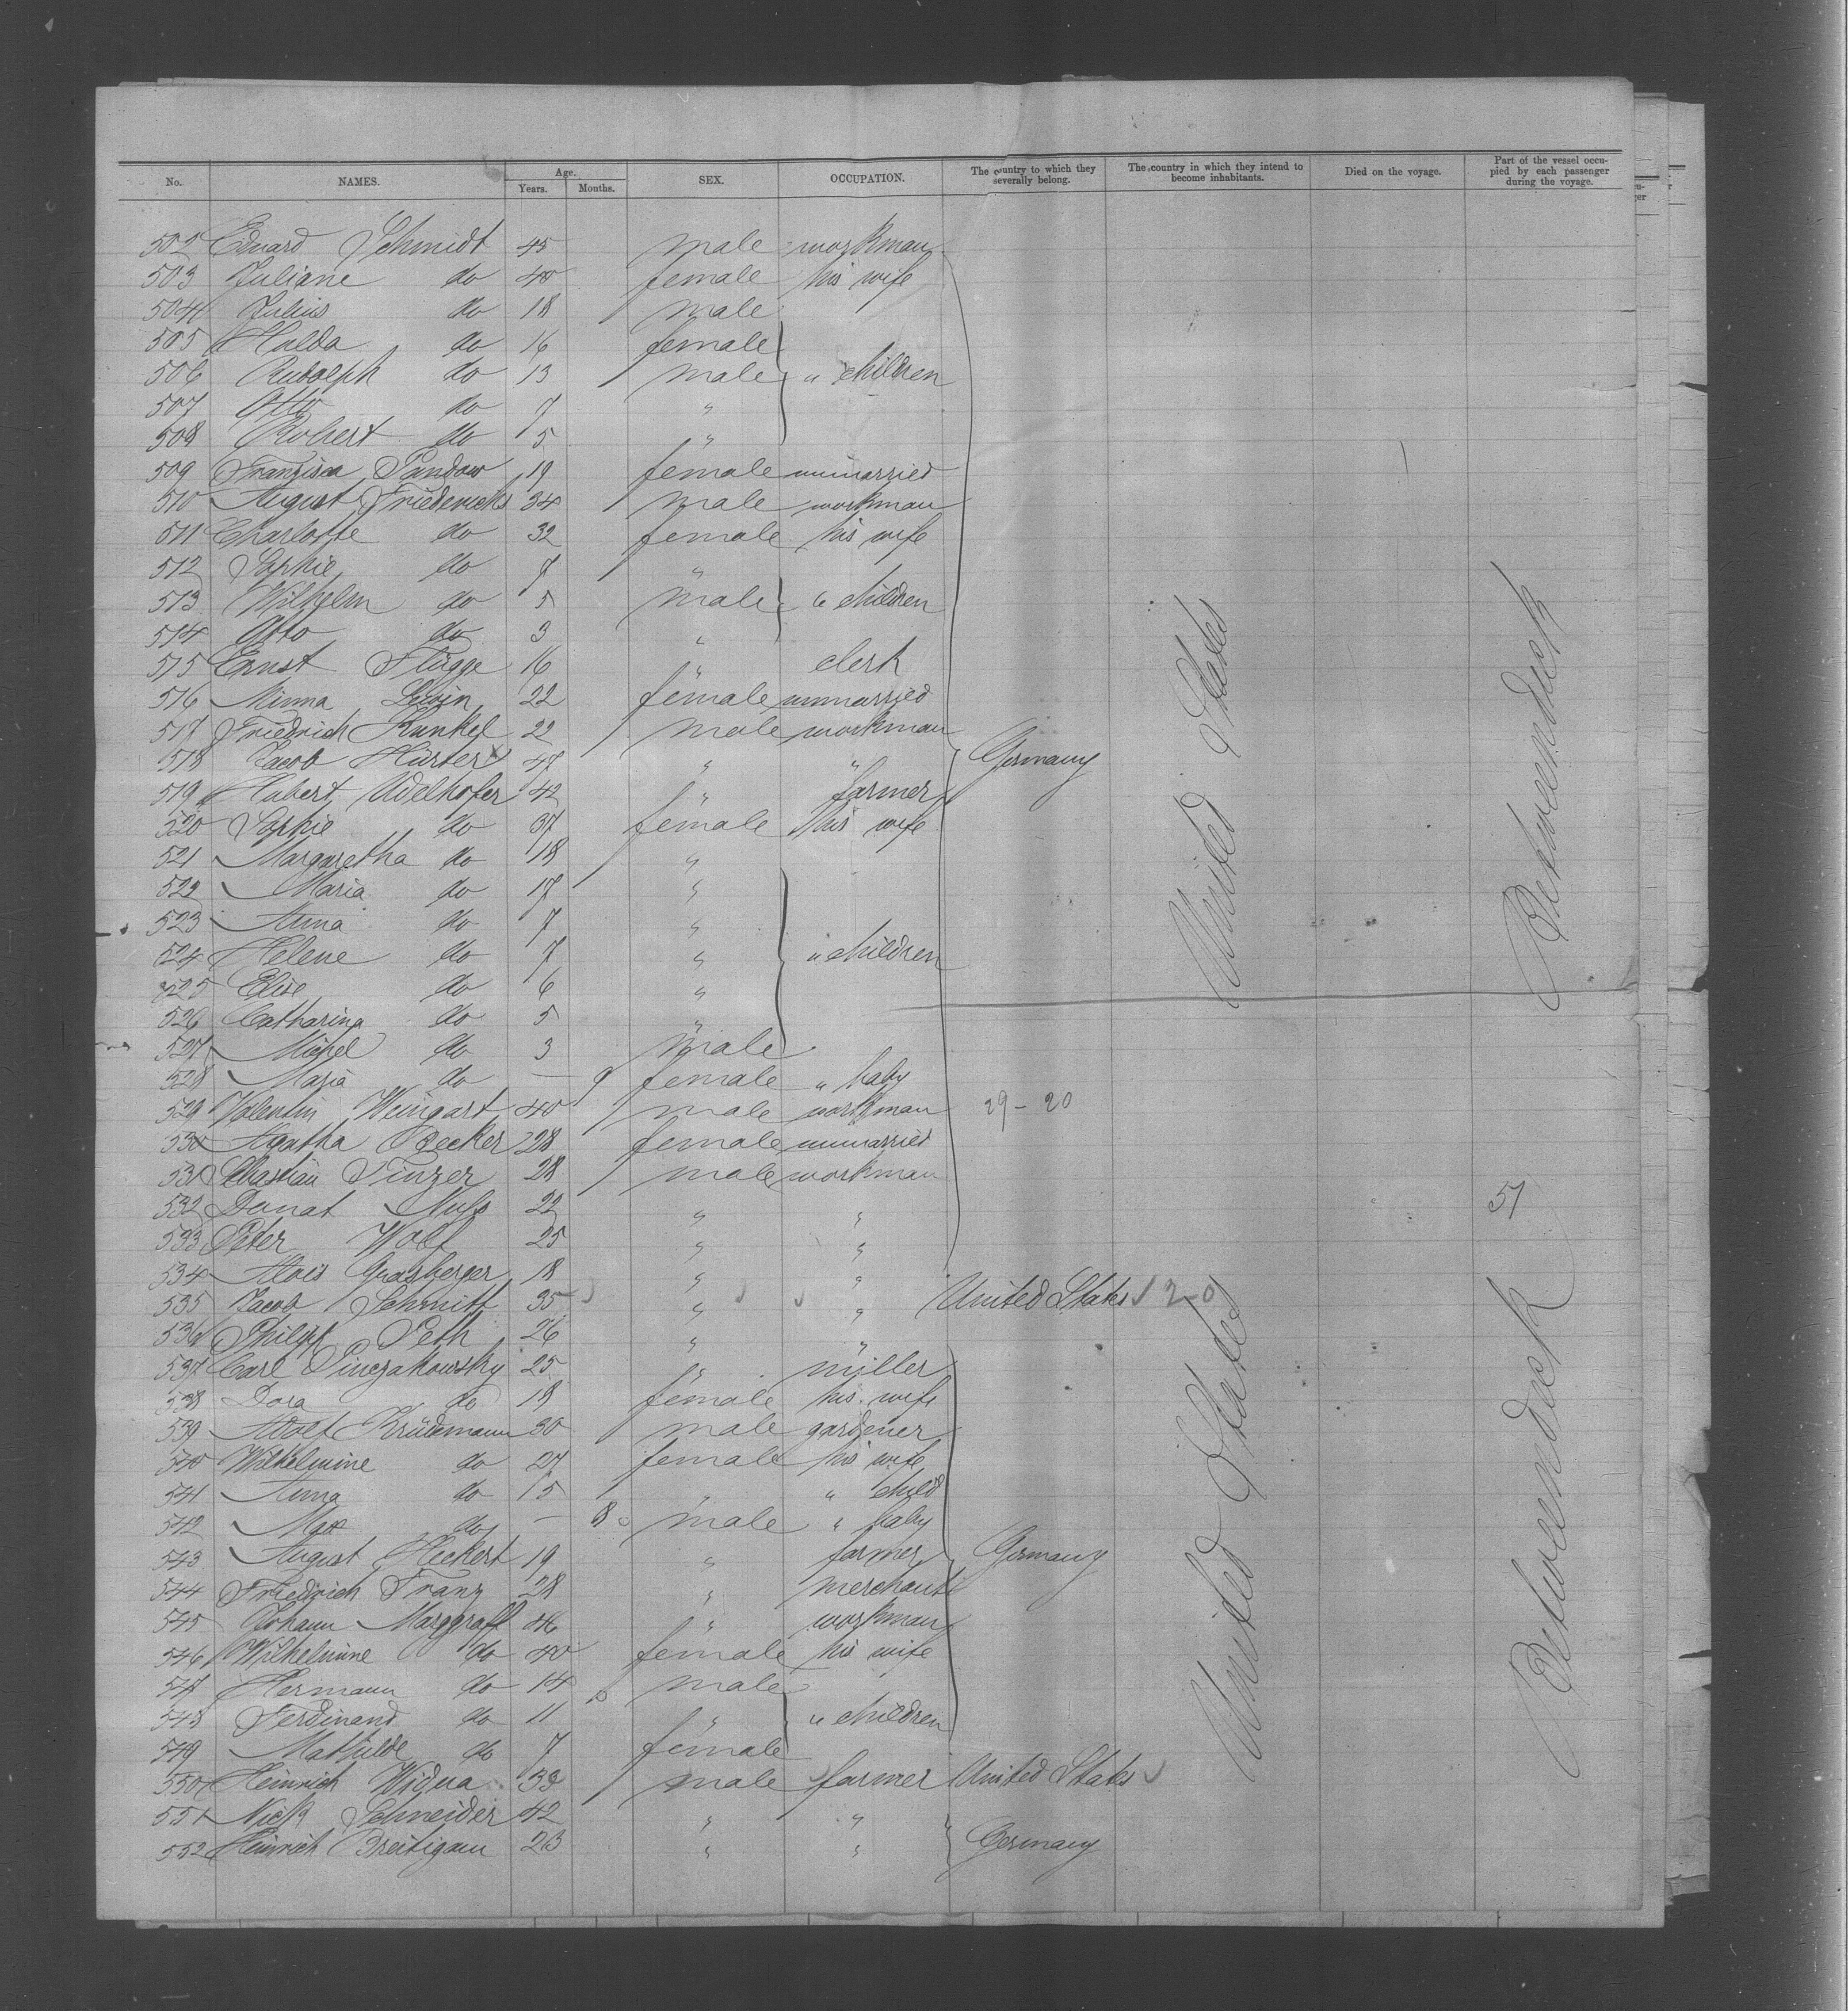 No. NAMES. Age. Years. Months. SEX. OCCUPATION. The country to which they severally belong. The country in which they intend to become inhabitants. Died on the voyage. Part of the vessel occupied by each passenger during the voyage.
502 Eduard Schmidt 45 male workman
503 Juliane do 40 female his wife
504 Julius do 18 male
505 Hulda do 16 female
506 Rudolph do 13 male " children
507 Otto do 7 "
508 Robert do 5 "
509 Franzisca Pandow 19 female unmarried
510 August Friederichs 34 male workman
511 Charlotte do 32 female his wife
512 Sophie do 7 "
513 Wilhelm do 5 male " children
514 Otto do 3 "
515 Ernst Flügge 16 " clerk
516 Minna Lewin 22 female unmarried
517 Friedrich Kunkel 22 male workman
518 Jacob Hürter 47 " " Germany
519 Hubert Udelhofer 42 " farmer
520 Sophie do 37 female his wife
521 Margaretha do 18 "
522 Maria do 17 "
523 Anna do 7 "
524 Helene do 7 " " children
525 Elise do 6 "
526 Catharina do 5 "
527 Michel do 3 male
528 Maria do — 9 female " baby
529 Valentin Weingart 40 male workman 29-20
530 Agatha Becker 28 female unmarried
531 Sebastian Sinzer 28 male workman
532 Donat 22 " " 51
533 Peter Wolf 25 " "
534 Alois Grasberger 18 " "
535 Jacob Schmitt 35 " " United States 20
536 Philipp Peth 26 " "
537 Carl Pinczakowsky 25 " miller
538 Dora do 19 female his wife
539 Adolf Krüdemann 30 male gardener
540 Wilhelmine do 27 female his wife
541 Anna do 5 " " child
542 Max do — 8 male " baby
543 August Heckert 19 " farmer Germany
544 Friedrich Franz 28 " merchant
545 Johann Marggraff 46 " workman
546 Wilhelmine do 40 female his wife
547 Hermann do 14 male
548 Ferdinand do 11 " " children
549 Mathilde do 7 female
550 Heinrich Widua male farmer United States
551 Nick Schneider 42 " "
552 Heinrich Breitigam 23 " " Germany
United States
Betweendeck
United States
Betweendeck